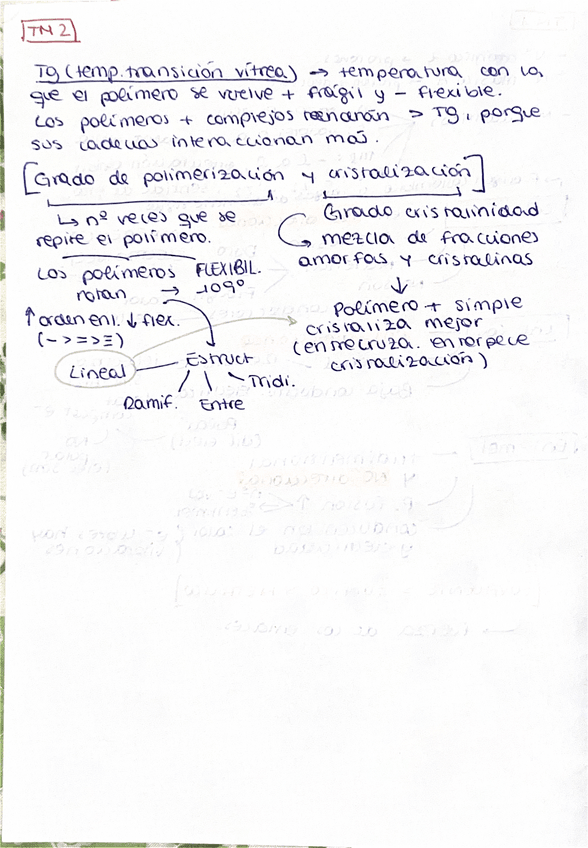 TM 2
Tg (temp. transición vítrea) → temperatura con la
que el polímero se vuelve + frágil y - flexible.
Los polímeros + complejos > Tg, porque
sus cadenas interaccionan más.
[Grado de polimerización y cristalización]
↳ nº veces que se
repite el polímero.
Los polímeros FLEXIBIL.
rotan → 109º
↑ orden enl. ↓ flex.
(- > = > ≡)
Lineal
Estruct
Ramif. Entre Tridi.
Grado cristalinidad
→ mezcla de fracciones
amorfas y cristalinas
↓
Polímero + simple
cristaliza mejor
(entrecruza. entorpece
cristalización)